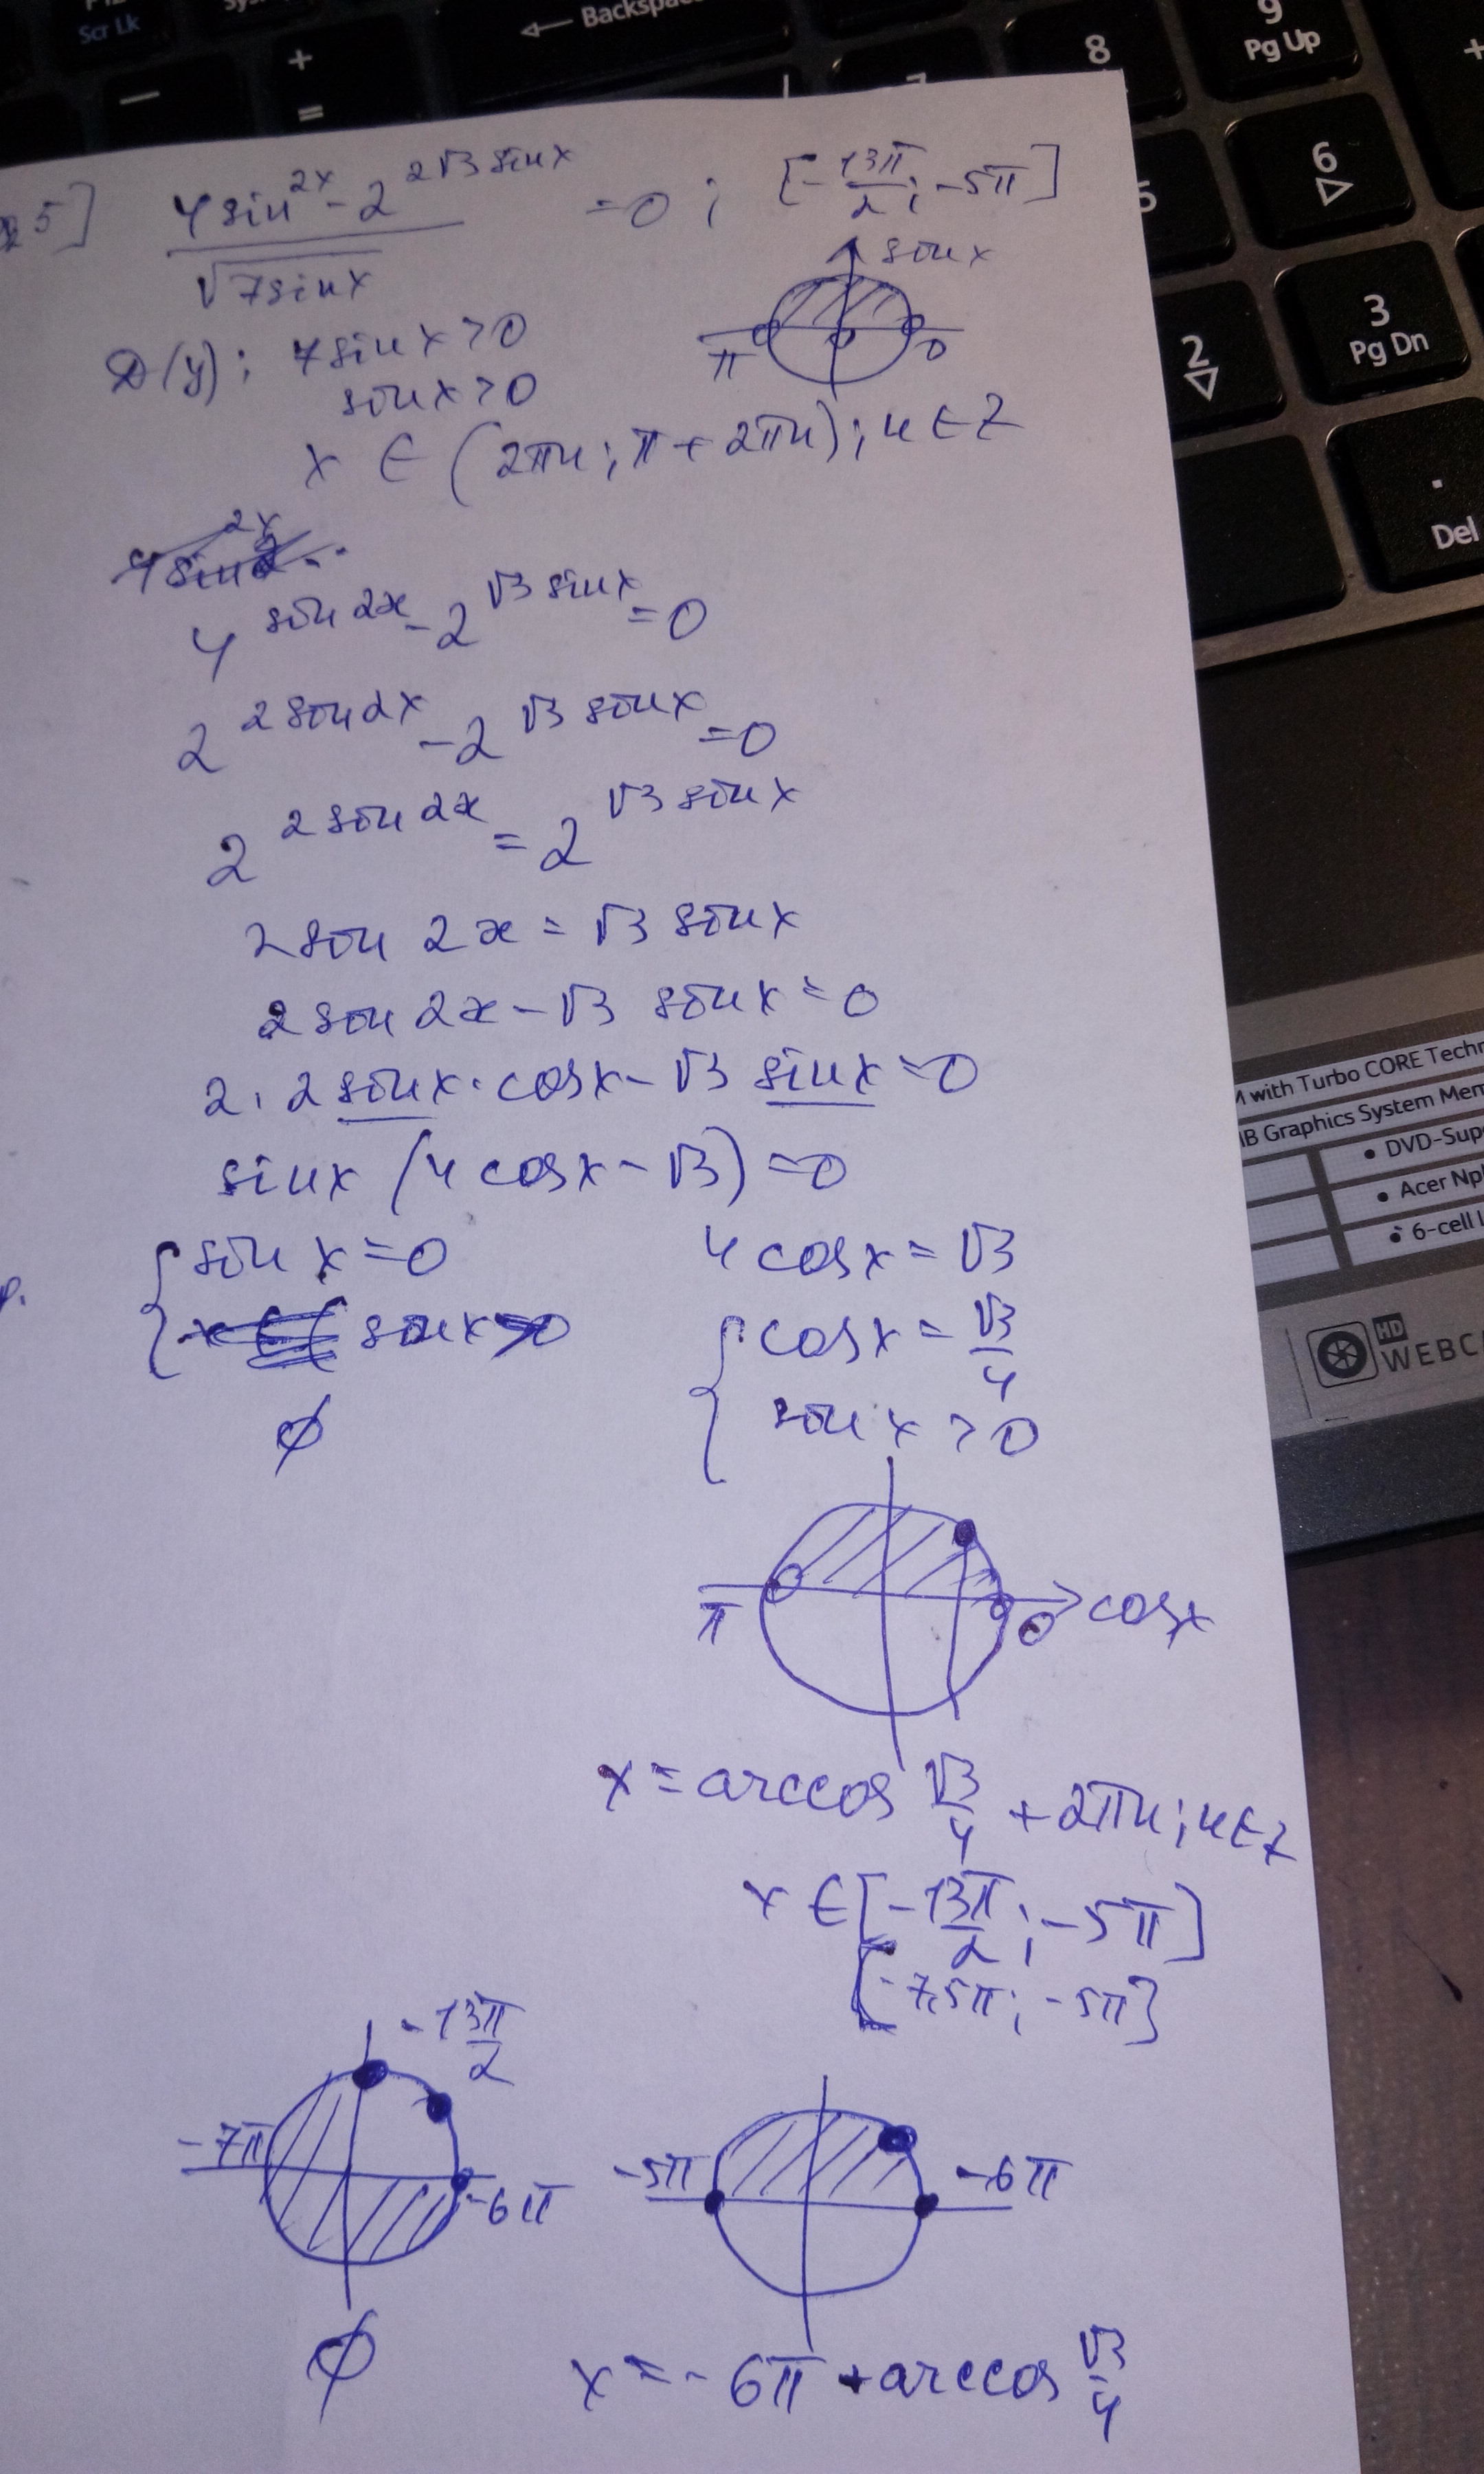 Scr Lk
Backspa
+
=
—
7
8
9
Pg Up
+
5
6
2
3
Pg Dn
.
Del
5] (4 sin^2x - 2^(2√3 sinx)) / √7sinx = 0 ; [-13π/2; -5π]
sinx
π 0
D(y): 7sinx > 0
sinx > 0
x ∈ (2πn; π + 2πn); n ∈ Z
4^(sin 2x) - 2^(√3 sinx) = 0
2^(2 sin 2x) - 2^(√3 sinx) = 0
2^(2 sin 2x) = 2^(√3 sinx)
2 sin 2x = √3 sinx
2 sin 2x - √3 sinx = 0
2 · 2 sinx · cosx - √3 sinx = 0
sinx (4 cosx - √3) = 0
{ sinx = 0
sinx > 0
∅
4 cosx = √3
{ cosx = √3/4
sinx > 0
π 0 cosx
x = arccos √3/4 + 2πn; n ∈ Z
x ∈ [-13π/2; -5π]
[-7,5π; -5π]
-13π/2
-7π -6π
∅
-5π -6π
x = -6π + arccos √3/4
M with Turbo CORE Techn
IB Graphics System Mem
• DVD-Supe
• Acer Npl
• 6-cell
HD
WEBCA